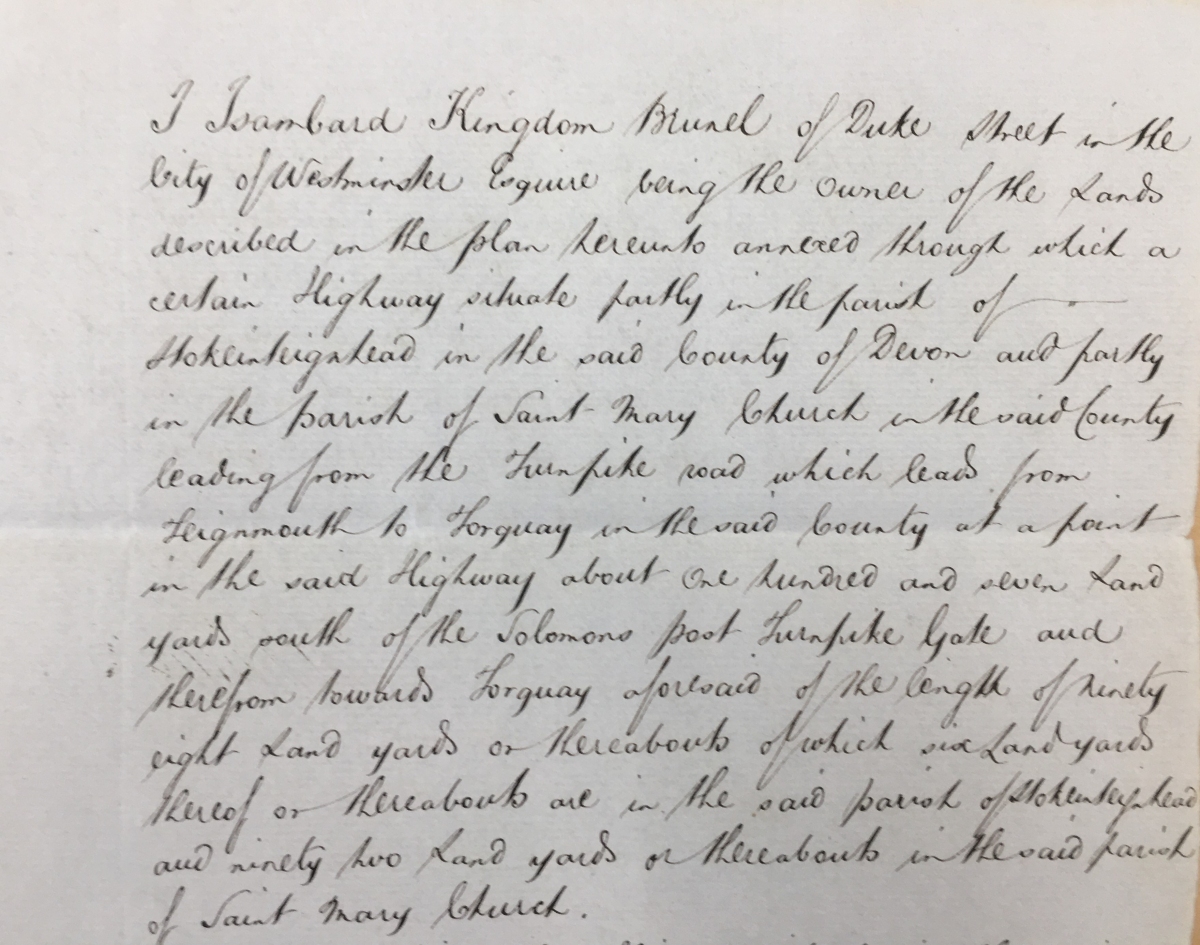 I Isambard Kingdom Brunel of Duke Street in the
City of Westminster Esquire being the Owner of the Lands
described in the plan hereunto annexed through which a
certain Highway situate partly in the parish of
Stokeinteignhead in the said County of Devon and partly
in the parish of Saint Mary Church in the said County
leading from the Turnpike road which leads from
Teignmouth to Torquay in the said County at a point
in the said Highway about One hundred and seven Land
yards south of the Solomons post Turnpike Gate and
therefrom towards Torquay aforesaid of the length of Ninety
eight Land yards or thereabouts of which six Land yards
thereof or thereabouts are in the said parish of Stokeinteignhead
and ninety two Land yards or thereabouts in the said parish
of Saint Mary Church.